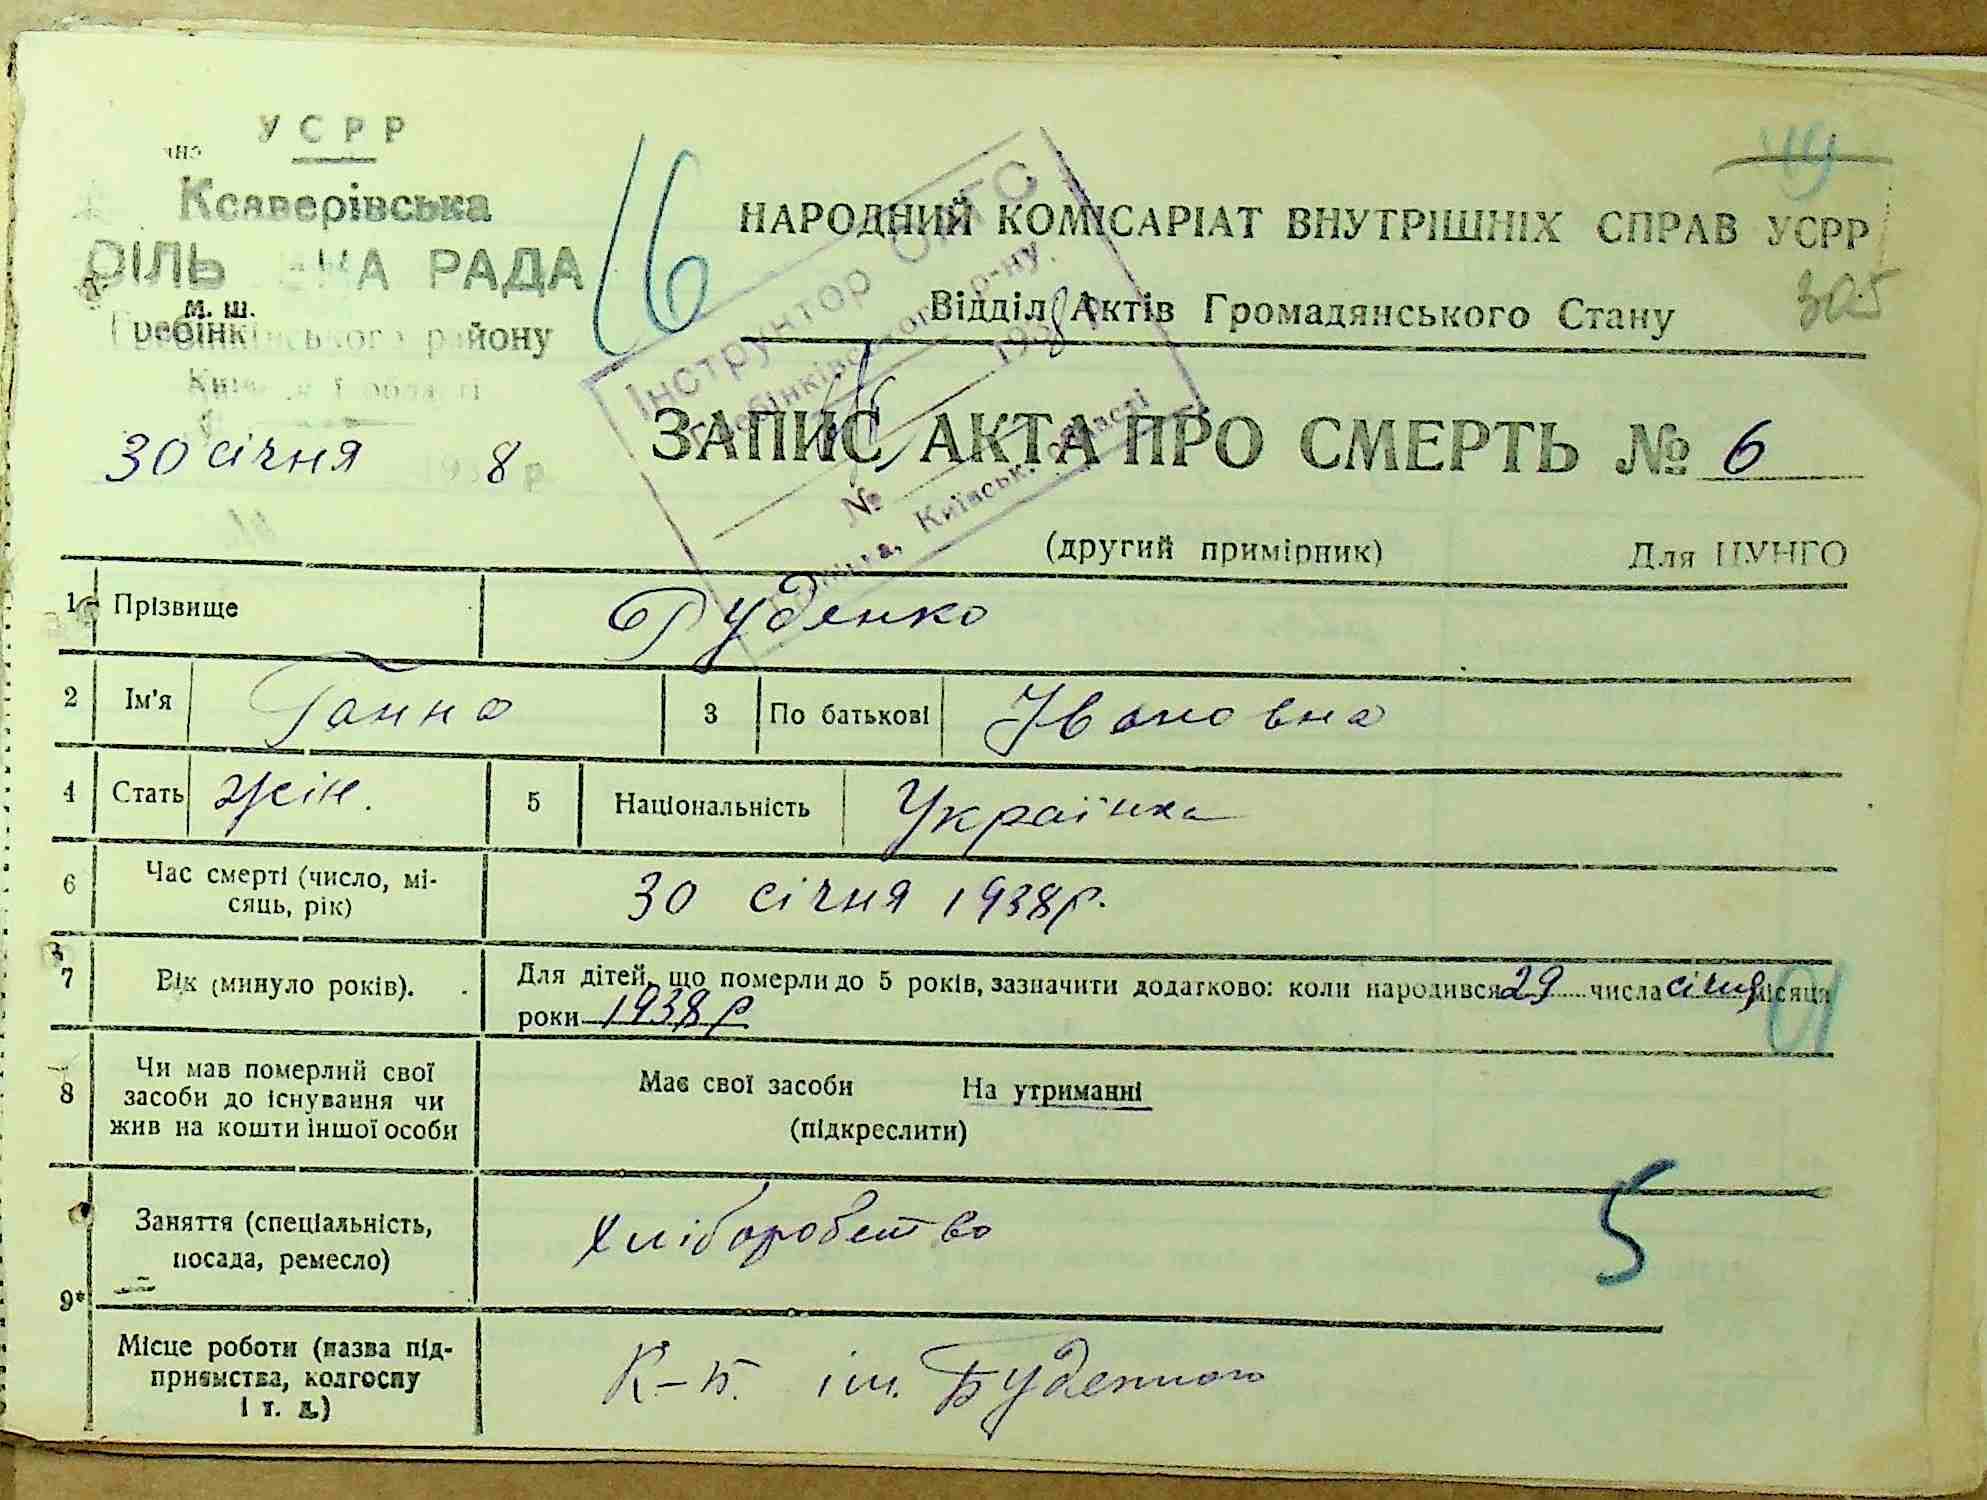 УСРР
Ксаверівська
РАДА
м. ш.
Гребінківського району
Київської області
30 січня 1938 р.
16
49
НАРОДНИЙ КОМІСАРІАТ ВНУТРІШНІХ СПРАВ УСРР
Відділ Актів Громадянського Стану
305
Інструктор
Гребінківського р-ну.
1938 р.
№
Київськ. області
ЗАПИС АКТА ПРО СМЕРТЬ № 6
(другий примірник) Для ЦУНГО
1 Прізвище Руденко
2 Ім'я Ганна 3 По батькові Івановна
4 Стать жін. 5 Національність Українка
6 Час смерті (число, мі-
сяць, рік) 30 січня 1938 р.
7 Вік (минуло років). Для дітей, що померли до 5 років, зазначити додатково: коли народився 29 числа січня місяця
роки 1938 р
01
8 Чи мав померлий свої
засоби до існування чи
жив на кошти іншої особи
Має свої засоби На утриманні
(підкреслити)
9* Заняття (спеціальність,
посада, ремесло) Хліборобство
5
Місце роботи (назва під-
приємства, колгоспу
і т. д.) К-п. ім. Буденного